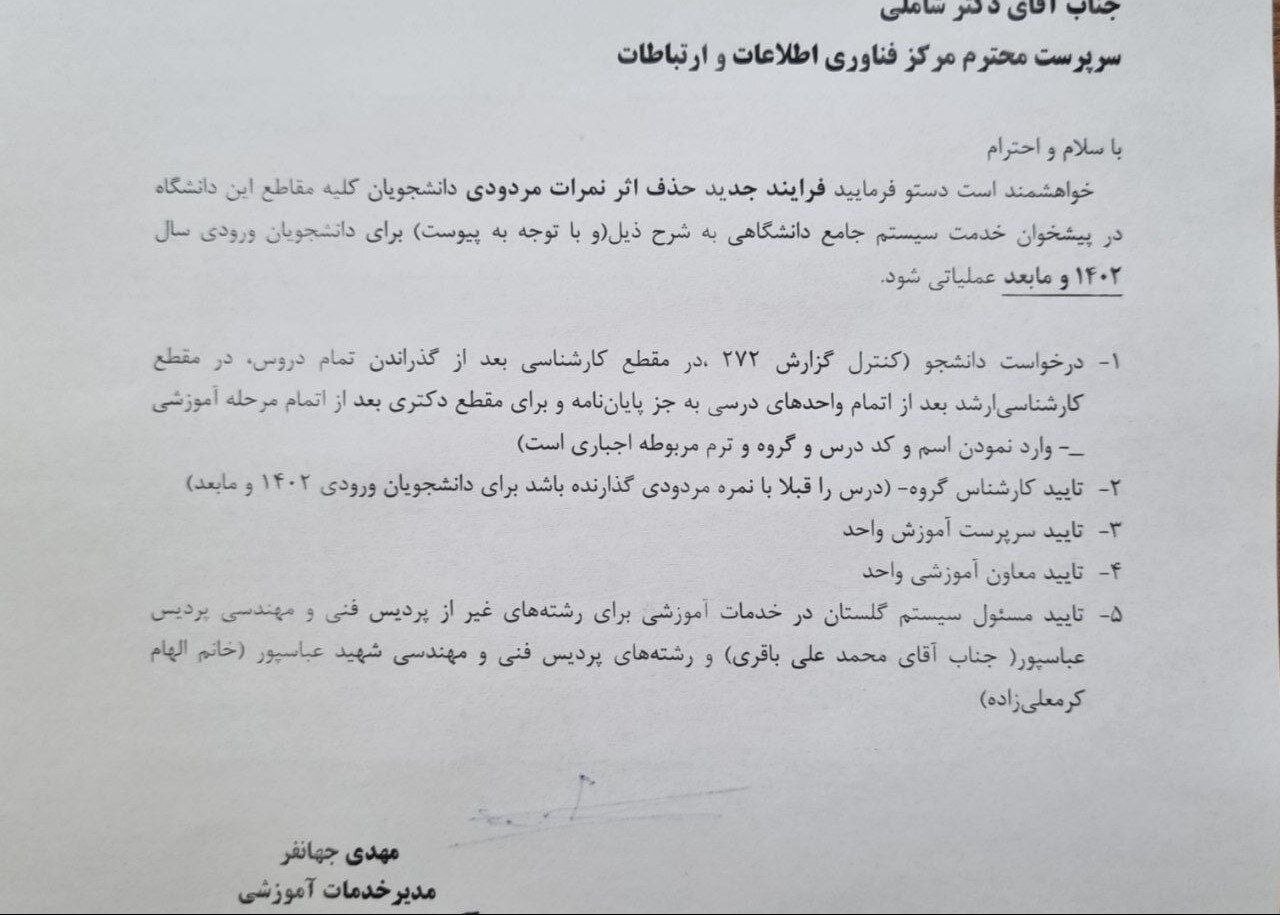 جناب آقای دکتر شاملی
سرپرست محترم مرکز فناوری اطلاعات و ارتباطات
با سلام و احترام
خواهشمند است دستو فرمایید فرایند جدید حذف اثر نمرات مردودی دانشجویان کلیه مقاطع این دانشگاه
در پیشخوان خدمت سیستم جامع دانشگاهی به شرح ذیل(و با توجه به پیوست) برای دانشجویان ورودی سال
۱۴۰۲ و مابعد عملیاتی شود.
۱- درخواست دانشجو (کنترل گزارش ۲۷۲ ،در مقطع کارشناسی بعد از گذراندن تمام دروس، در مقطع
کارشناسی‌ارشد بعد از اتمام واحدهای درسی به جز پایان‌نامه و برای مقطع دکتری بعد از اتمام مرحله آموزشی
_- وارد نمودن اسم و کد درس و گروه و ترم مربوطه اجباری است)
۲- تایید کارشناس گروه- (درس را قبلا با نمره مردودی گذارنده باشد برای دانشجویان ورودی ۱۴۰۲ و مابعد)
۳- تایید سرپرست آموزش واحد
۴- تایید معاون آموزشی واحد
۵- تایید مسئول سیستم گلستان در خدمات آموزشی برای رشته‌های غیر از پردیس فنی و مهندسی پردیس
عباسپور( جناب آقای محمد علی باقری) و رشته‌های پردیس فنی و مهندسی شهید عباسپور (خانم الهام
کرمعلی‌زاده)
مهدی جهانفر
مدیرخدمات آموزشی